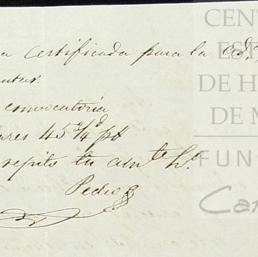 a certificada para la
convocatoria
45 3/4 pf
repito tu am.te h.o
Pedro
CEN
ES
DE H
DE M
FUN
Car